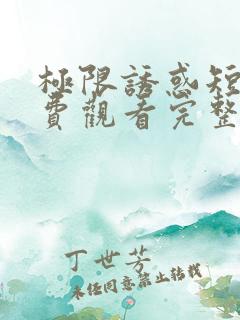 極限誘惑短
費觀看完整
丁世芳
未经同意禁止转载